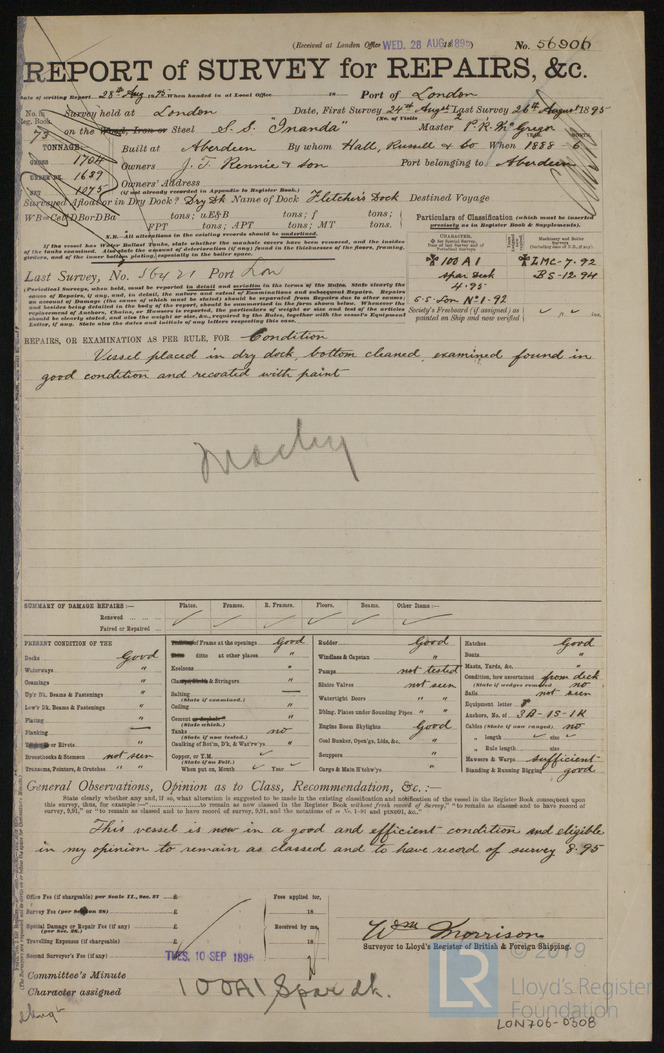 (Received at London Office WED. 28 AUG 1895) No. 56906
REPORT of SURVEY for REPAIRS, &c.
Date of writing Report 28th Aug 1895 When handed in at Local Office 18 Port of London
No. in Reg. Book Survey held at London Date, First Survey 24th Augst Last Survey 26th August 1895
(No. of Visits 2
73 on the Wood, Iron or Steel S.S. "Inanda" Master P. R. McGregor
TONNAGE:
GROSS 1704
UNDER DK. 1689
NET 1075
Built at Aberdeen By whom Hall, Russell & Co When 1888 - 6
YEAR. MONTH.
Owners J. T. Rennie & Son Port belonging to Aberdeen
Owners' Address
(if not already recorded in Appendix to Register Book.)
Surveyed Afloat or in Dry Dock? Dry Dk Name of Dock Fletcher's Dock Destined Voyage
WB=CellDBorDBa tons; uE&B tons; f tons;
FPT tons; APT tons; MT tons.
N.B.—All alterations in the existing records should be underlined.
If the vessel has Water Ballast Tanks, state whether the manhole covers have been removed, and the insides
of the tanks examined. Also state the amount of deterioration (if any) found in the thicknesses of the floors, framing,
girders, and of the inner bottom plating, especially in the boiler space.
Particulars of Classification (which must be inserted
precisely as in Register Book & Supplements).
CHARACTER.
Machinery and Boiler
Surveys
✠ 100 A 1 ✠ LMC-7.92
Spar Deck BS-12.94
4.95
S.S. Lon No 1-92
Society's Freeboard (if assigned) as
painted on Ship and now verified
Last Survey, No. 56421 Port Lon
(Periodical Surveys, when held, must be reported in detail and seriatim in the terms of the Rules. State clearly the
cause of Repairs, if any, and, in detail, the nature and extent of Examinations and subsequent Repairs. Repairs
on account of Damage (the cause of which must be stated) should be separated from Repairs due to other causes;
and besides being detailed in the body of the report, should be summarised in the form shewn below. Whenever the
replacement of Anchors, Chains, or Hawsers is reported, the particulars of weight or size and test of the articles
should be clearly stated, and also the weight or size, &c., required by the Rules, together with the vessel's Equipment
Letter, if any. State also the dates and initials of any letters respecting this case.
REPAIRS, OR EXAMINATION AS PER RULE, FOR Condition
Vessel placed in dry dock, bottom cleaned, examined found in
good condition and recoated with paint
SUMMARY OF DAMAGE REPAIRS:— Plates. Frames. R. Frames. Floors. Beams. Other Items:—
Renewed
Faired or Repaired
PRESENT CONDITION OF THE
Decks Good
Waterways "
Coamings "
Up'r Dk. Beams & Fastenings "
Low'r Dk. Beams & Fastenings "
Plating "
Planking —
or Rivets "
Breasthooks & Stemson not seen
Transoms, Pointers, & Crutches " "
of Frame at the openings Good
ditto at other places "
Keelsons "
& Stringers "
Salting —
(State if examined.)
Ceiling "
Cement or Asphalt "
(State which.)
Tanks no
(State if now tested.)
Caulking of Bot'm, D'k, & Wat'rw'ys "
Copper, or Y.M.
(State if on Felt.)
When put on, Month Year
Rudder Good
Windlass & Capstan "
Pumps not tested
Sluice Valves not seen
Watertight Doors " "
Dblng. Plates under Sounding Pipes " "
Engine Room Skylights Good
Coal Bunker, Open'gs, Lids, &c. "
Scuppers "
Cargo & Main H'tchw'ys "
Hatches Good
Boats "
Masts, Yards, &c. "
Condition, how ascertained from deck
(State if wedges removed no
Sails not seen
Equipment letter
Anchors, No. of 3A-1S-1K
Cables (State if now ranged) no
" length size
" Rule length size
Hawsers & Warps sufficient
Standing & Running Rigging good
General Observations, Opinion as to Class, Recommendation, &c.:—
State clearly whether any, and if so, what alteration is suggested to be made in the existing classification and notification of the vessel in the Register Book consequent upon
this survey, thus, for example:—" to remain as now classed in the Register Book without fresh record of Survey," "to remain as classed and to have record of
survey, 9,91," or "to remain as classed and to have record of survey, 9,91, and the notations of
This vessel is now in a good and efficient condition and eligible
in my opinion to remain as classed and to have record of survey 8.95
Office Fee (if chargeable) per Scale II., Sec. 27 £
Survey Fee (per Section 28) £
Special Damage or Repair Fee (if any) £
(per Sec. 28.)
Travelling Expenses (if chargeable) £
Second Surveyor's Fee (if any) £
Fees applied for,
18
Received by me,
18
Wm Morrison
Surveyor to Lloyd's Register of British & Foreign Shipping.
Committee's Minute TUES. 10 SEP 1895
Character assigned 100A1 Spar dk.
© 2019
LR
Lloyd's Register
Foundation
LON706-0308